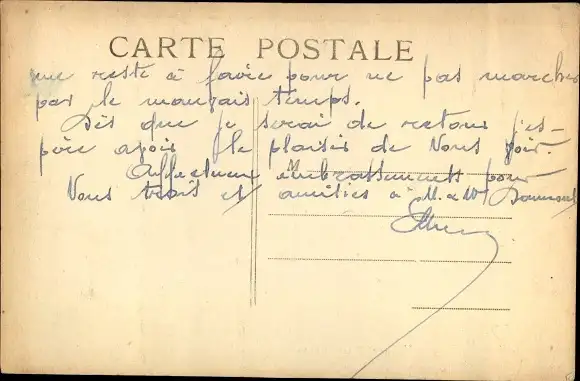 CARTE POSTALE
me reste à faire pour ne pas marcher
par le mauvais temps.
Dès que je serai de retour j'es-
père avoir le plaisir de Vous voir.
Affectueux embrassements pour
Vous trois et amitiés à M. & Mme